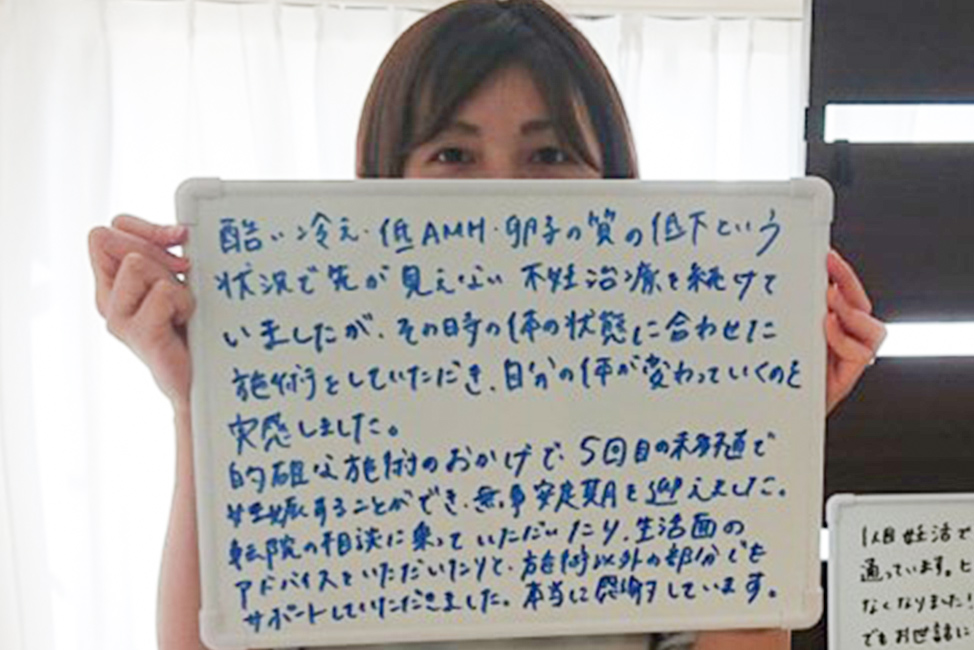 酷い冷え・低AMH・卵子の質の低下という
状況で先が見えない不妊治療を続けて
いましたが、その時の体の状態に合わせた
施術をしていただき、自分の体が変わっていくのを
実感しました。
的確な施術のおかげで、5回目の移植で
妊娠することができ、無事安定期を迎えました。
転院の相談に乗っていただいたり、生活面の
アドバイスをいただいたりと、施術以外の部分でも
サポートしていただきました。本当に感謝しています。
1人目妊活で
通っています。ヒ
なくなりました!
でもお世話に